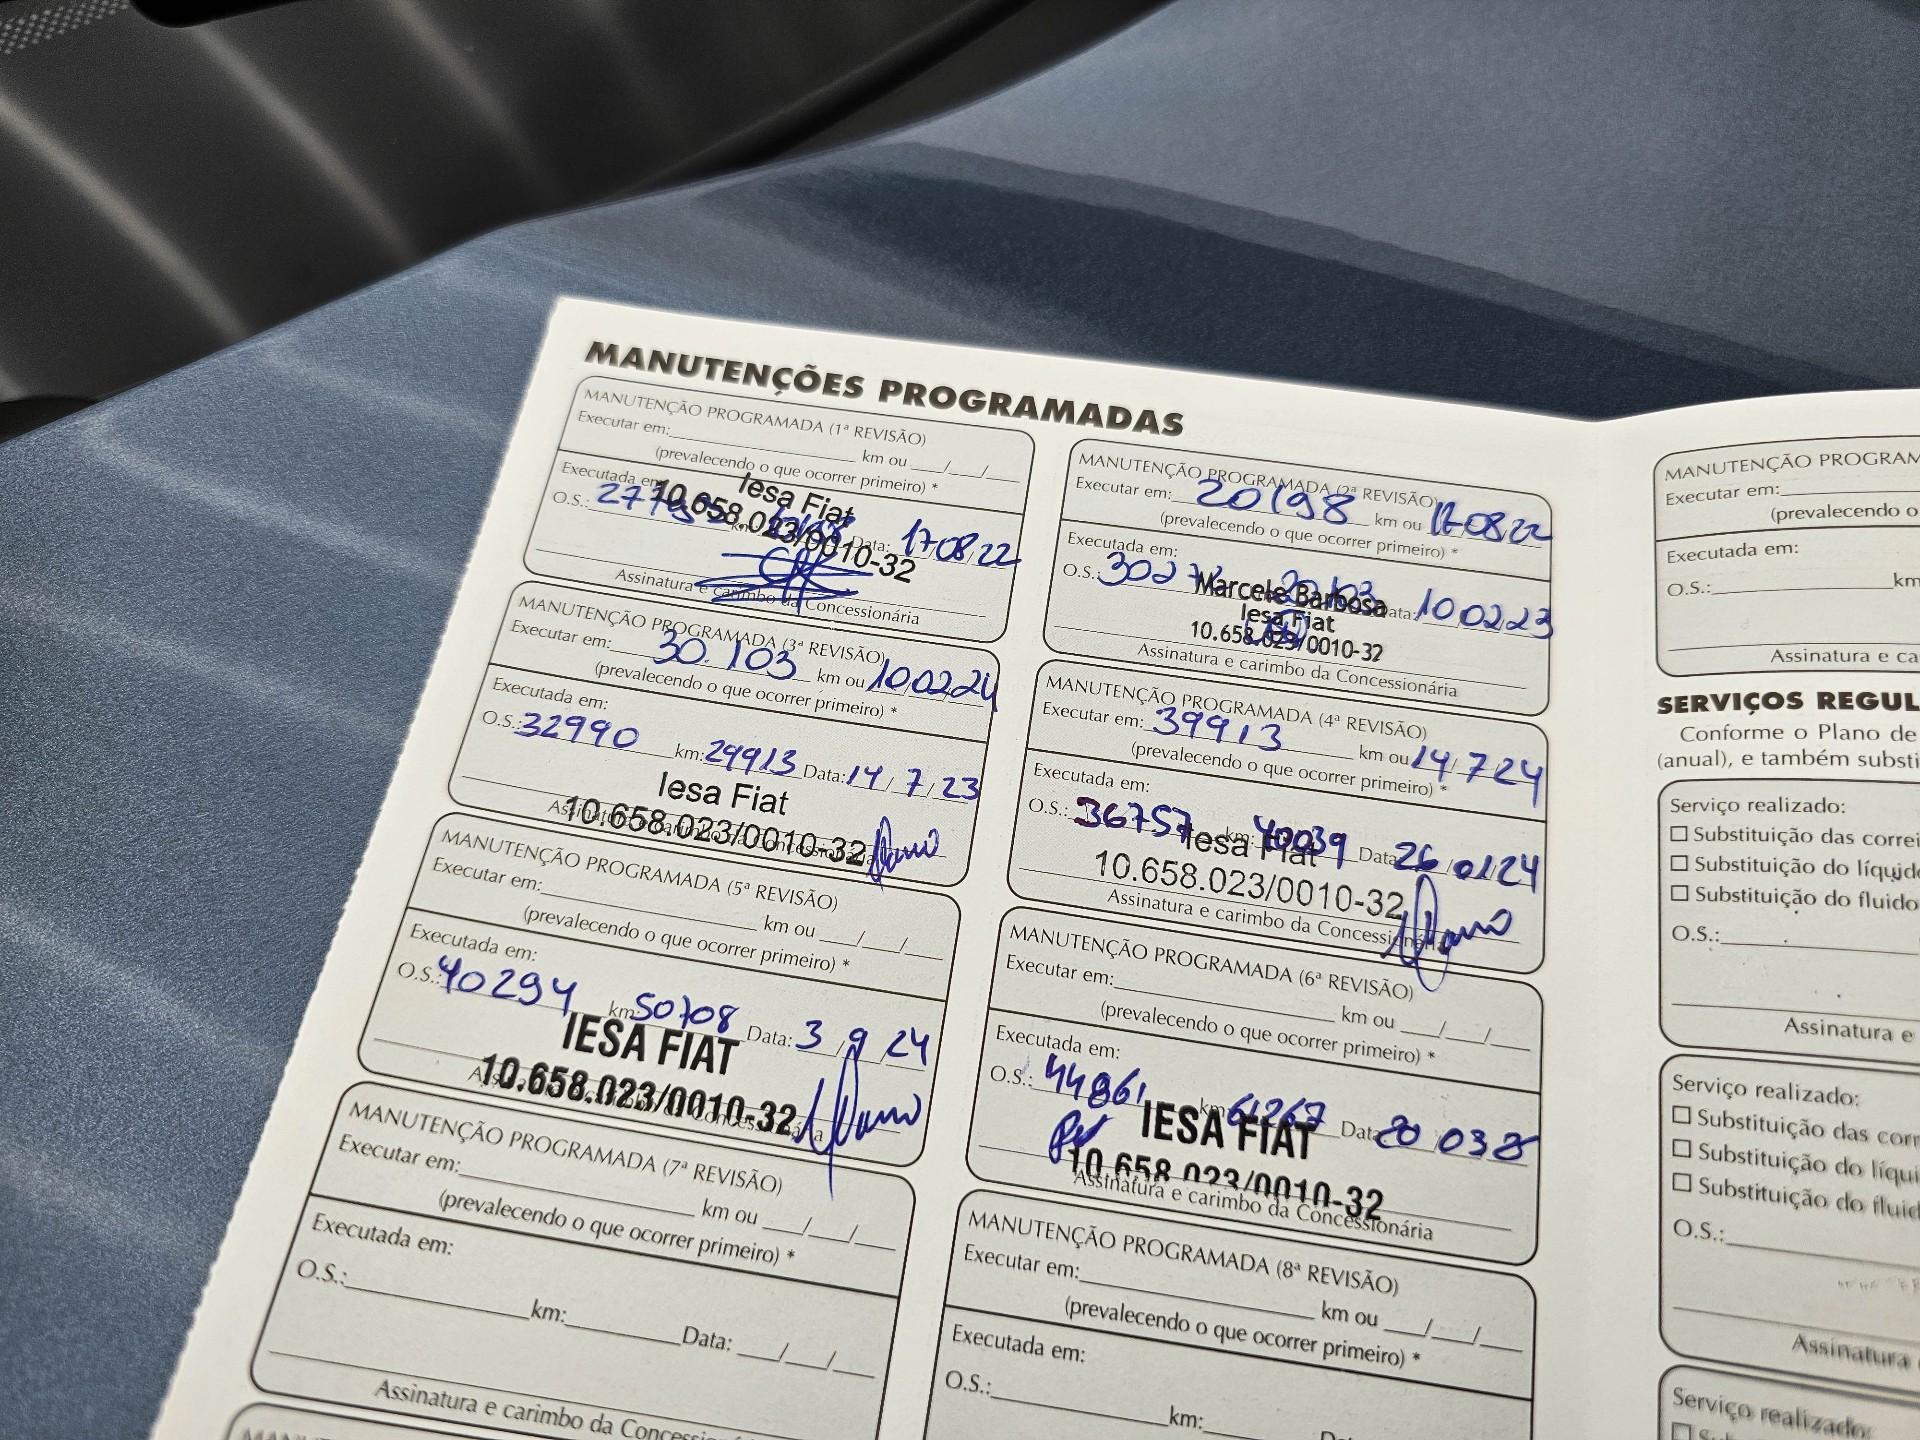 MANUTENÇÕES PROGRAMADAS
MANUTENÇÃO PROGRAMADA (1ª REVISÃO)
Executar em: km ou / /
(prevalecendo o que ocorrer primeiro) *
Executada em:
Iesa Fiat
10.658.023/0010-32
O.S.: km: Data: 17 08 22
Assinatura e carimbo da Concessionária
MANUTENÇÃO PROGRAMADA (2ª REVISÃO)
Executar em: 20198 km ou 17 08 22
(prevalecendo o que ocorrer primeiro) *
Executada em:
O.S.: Data: 10 02 23
Marcele Barbosa
Iesa Fiat
10.658.023/0010-32
Assinatura e carimbo da Concessionária
MANUTENÇÃO PROGRAMADA (3ª REVISÃO)
Executar em: 30.103 km ou 10 02 24
(prevalecendo o que ocorrer primeiro) *
Executada em:
O.S.: 32990 km: 29913 Data: 14/7/23
Iesa Fiat
10.658.023/0010-32
Assinatura e carimbo da Concessionária
MANUTENÇÃO PROGRAMADA (4ª REVISÃO)
Executar em: 39913 km ou 14/7 24
(prevalecendo o que ocorrer primeiro) *
Executada em:
O.S.: 36757 km: 40039 Data 26/01/24
Iesa Fiat
10.658.023/0010-32
Assinatura e carimbo da Concessionária
MANUTENÇÃO PROGRAMADA (5ª REVISÃO)
Executar em: km ou / /
(prevalecendo o que ocorrer primeiro) *
Executada em:
O.S.: 40294 km: 50708 Data: 3/9/24
IESA FIAT
10.658.023/0010-32
MANUTENÇÃO PROGRAMADA (6ª REVISÃO)
Executar em: km ou / /
(prevalecendo o que ocorrer primeiro) *
Executada em:
O.S.: 44861 km 61267 Data 20 03
IESA FIAT
10.658.023/0010-32
Assinatura e carimbo da Concessionária
MANUTENÇÃO PROGRAMADA (7ª REVISÃO)
Executar em: km ou / /
(prevalecendo o que ocorrer primeiro) *
Executada em:
O.S.: km: Data: / /
Assinatura e carimbo da Concessi
MANUTENÇÃO PROGRAMADA (8ª REVISÃO)
Executar em: km ou / /
(prevalecendo o que ocorrer primeiro) *
Executada em:
O.S.: km:
MANUTENÇÃO PROGRAM
Executar em:
(prevalecendo o
Executada em:
O.S.: km
Assinatura e ca
SERVIÇOS REGUL
Conforme o Plano de
(anual), e também substi
Serviço realizado:
☐ Substituição das correi
☐ Substituição do líquido
☐ Substituição do fluido
O.S.:
Assinatura e
Serviço realizado:
☐ Substituição das corr
☐ Substituição do líqui
☐ Substituição do fluid
O.S.:
Assinatura
Serviço realizado: